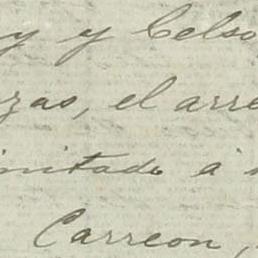 y y Celso
zas, el arre
mitado á
Carreon,